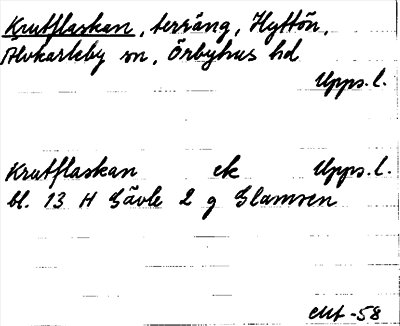 Krutflaskan, terräng, Hyttön,
Älvkarleby sn, Örbyhus hd
Upps. l.
Krutflaskan ek Upps. l.
bl. 13 H Gävle 2 g Glamsen
-58